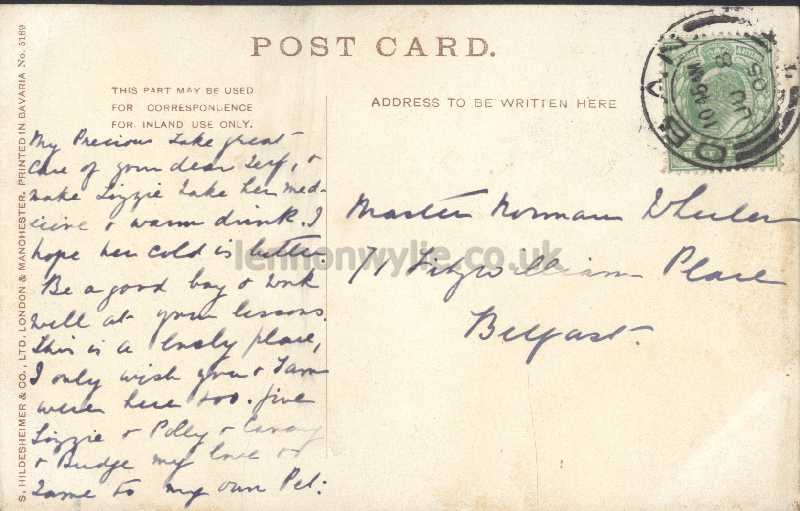 POST CARD.
THIS PART MAY BE USED
FOR CORRESPONDENCE
FOR INLAND USE ONLY.
ADDRESS TO BE WRITTEN HERE
S. HILDESHEIMER & CO., LTD. LONDON & MANCHESTER. PRINTED IN BAVARIA No. 5189
My Precious Take great
care of your dear Self, &
make Lizzie take her med-
icine & warm drink. I
hope her cold is better.
Be a good boy & work
well at your lessons.
This is a lovely place,
I only wish you & Sam
were here too. Give
Lizzie & Polly & Canary
& Budge my love &
Same to my own Pet:
Master Norman Wheeler
71 Fitzwilliam Place
Belfast.
OBAN
10 45 AM
JU 8
05
lennonwylie.co.uk